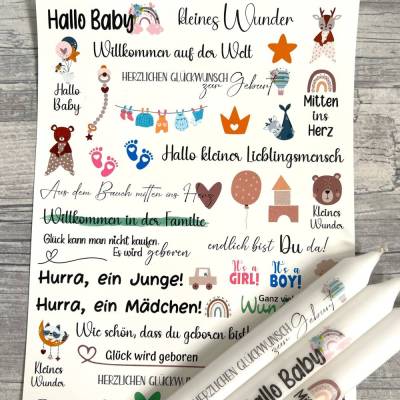 Hallo Baby
kleines Wunder
Willkommen auf der Welt
Hallo
Baby
HERZLICHEN GLÜCKWUNSCH
zur Geburt
Mitten
ins
Herz
Hallo kleiner Lieblingsmensch
Aus dem Bauch mitten ins Herz
Willkommen in der Familie
Kleines
Wunder
Glück kann man nicht kaufen
Es wird geboren
endlich bist Du da!
Hurra, ein Junge!
It's a
GIRL!
It's a
BOY!
Hurra, ein Mädchen!
Ganz
Wie schön, dass du geboren bist!
Kleines
Wunder
Glück wird geboren
HERZLICHEN
HERZLICHEN GLÜCKWUNSCH
zur Geburt
Hallo Baby